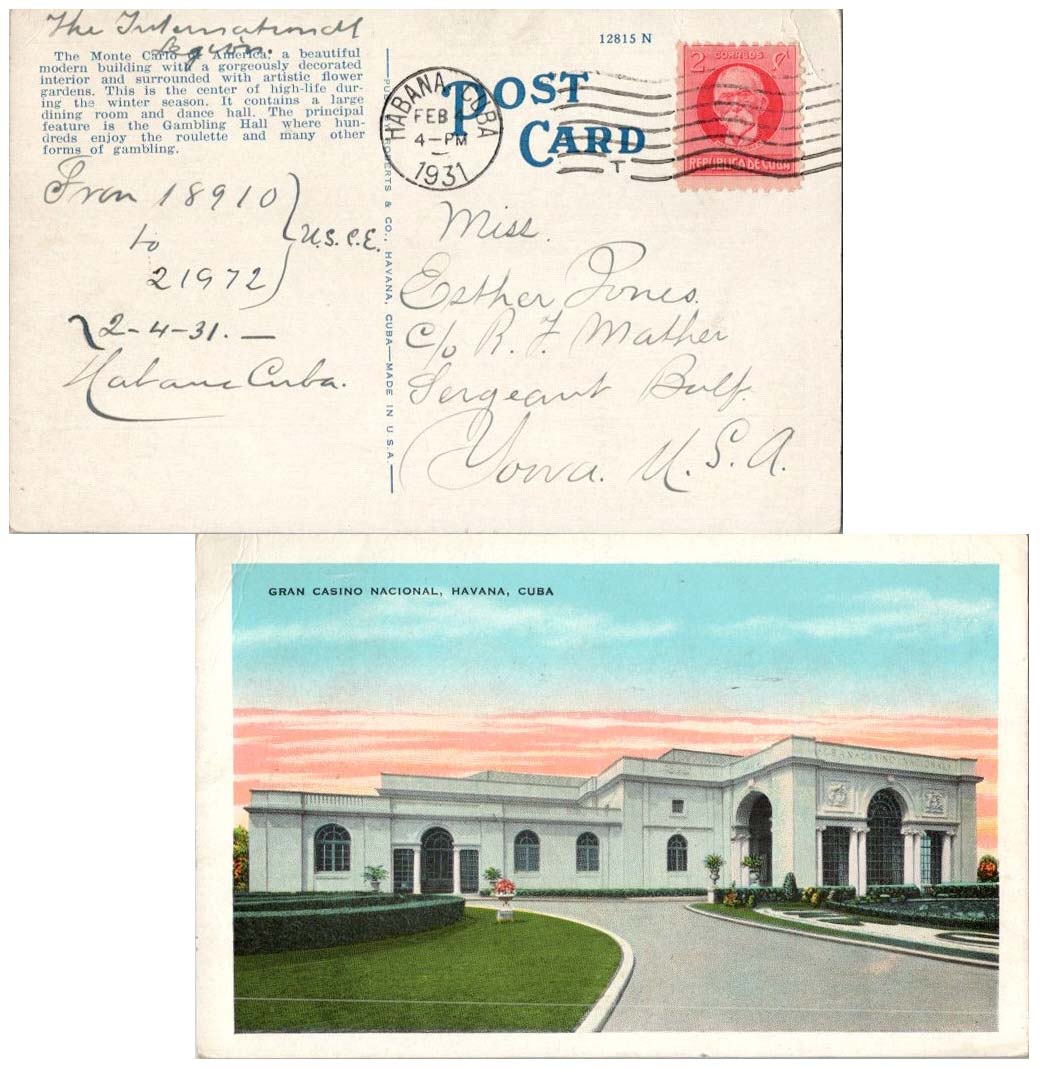 The International
Legion.
The Monte Carlo of America, a beautiful
modern building with a gorgeously decorated
interior and surrounded with artistic flower
gardens. This is the center of high-life dur-
ing the winter season. It contains a large
dining room and dance hall. The principal
feature is the Gambling Hall where hun-
dreds enjoy the roulette and many other
forms of gambling.
From 18910
to
21972
U.S.C.E.
2-4-31. —
Habana Cuba.
ROBERTS & CO., HAVANA, CUBA—MADE IN U.S.A.
12815 N
POST
CARD
HABANA, CUBA
FEB 4
4-PM
1931
T
CORREOS
2 ¢
REPUBLICA DE CUBA
Miss.
Esther Jones.
c/o R. F. Mather
Sergeant Bluff.
Iowa. U.S.A.
GRAN CASINO NACIONAL, HAVANA, CUBA
GRAN·CASINO·NACIONAL